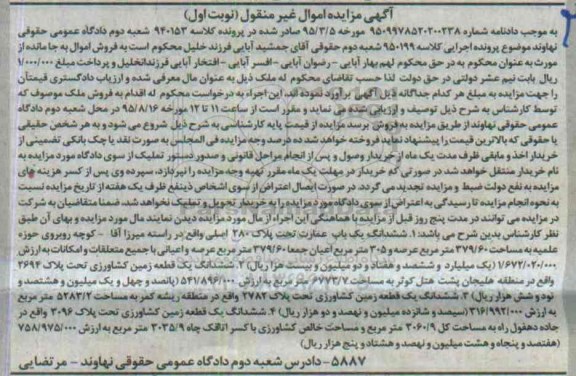 آگهی مزایده اموال غیر منقول (نوبت اول)
به موجب دادنامه شماره ۹۵۰۹۹۷۸۵۲۰۲۰۰۲۳۸ مورخه ۹۵/۳/۵ صادر شده در پرونده کلاسه ۹۴۰۱۵۲ شعبه دوم دادگاه عمومی حقوقی
نهاوند موضوع پرونده اجرایی کلاسه ۹۵۰۱۹۹ شعبه دوم حقوقی آقای جمشید آبیاری فرزند خلیل محکوم است به فروش اموال به جا مانده از
مورث به عنوان محکوم به در حق محکوم لهم بهار آبیاری - رضوان آبیاری - افسر آبیاری - افتخار آبیاری فرزندان خلیل و پرداخت مبلغ ۹/۰۰۰/۰۰۰
ریال بابت نیم عشر دولتی در حق دولت لذا حسب تقاضای محکوم له ملک ذیل به عنوان مال معرفی شده و ارزیاب دادگستری قیمت آن
را جهت مزایده به مبلغ هر کدام جداگانه ذیل آگهی برآورد نموده اند، این اجراء به درخواست محکوم له اقدام به فروش ملک موصوف که
توسط کارشناس به شرح ذیل توصیف و ارزیابی شده می نماید و مقرر است از ساعت ۱۱ تا ۱۲ مورخه ۹۵/۸/۱۶ در محل شعبه دوم دادگاه
عمومی حقوقی نهاوند از طریق مزایده به فروش برسد مزایده از قیمت پایه کارشناسی به شرح ذیل شروع می شود و به هر شخص حقیقی
یا حقوقی که بالاترین قیمت را پیشنهاد نماید فروخته خواهد شد ده درصد وجه مزایده فی المجلس به صورت نقد یا چک بانکی تضمینی از
خریدار اخذ و مابقی ظرف مدت یک ماه از خریدار وصول و پس از انجام مراحل قانونی و صدور دستور تملیک از سوی دادگاه مورد مزایده به
نام خریدار منتقل خواهد شد در صورتی که خریدار در مهلت یک ماه مقرر بقیه وجه مزایده را نپردازد، سپرده وی پس از کسر هزینه های
مزایده به نفع دولت ضبط و مزایده تجدید می گردد. در صورت ایصال اعتراض از سوی اشخاص ذینفع ظرف یک هفته از تاریخ مزایده نسبت
به نحوه انجام مزایده تا رسیدگی به اعتراض از سوی دادگاه مورد مزایده را به خریدار تحویل و تملیک نخواهد شد، ضمنا متقاضیان به شرکت
در مزایده می توانند در مدت پنج روز قبل از مزایده با هماهنگی این اجراء از مال مورد مزایده دیدن نمایند مال مورد مزایده و بهای آن طبق
نظر کارشناس بدین شرح می باشد: ۱. ششدانگ یک باب عمارت تحت پلاک ۲۸۰ اصلی واقع در راسته میرزا آقا - کوچه روبروی حوزه
علمیه به مساحت ۳۷۹/۶۰ متر مربع عرصه و ۳۰۵ متر مربع اعیان جمعا ۳۷۹/۶۰ متر مربع عرصه و اعیانی با جمیع متعلقات و امکانات به ارزش
۱/۶۷۲/۰۲۰/۰۰۰ (یک میلیارد و ششصد و هفتاد و دو میلیون و بیست هزار ریال) ۲. ششدانگ یک قطعه زمین کشاورزی تحت پلاک ۲۶۹۴
واقع در منطقه هلیجان پشت هتل کوثر به مساحت ۶۷۷۳/۷ متر مربع به ارزش ۵۴۱/۸۹۶/۰۰۰ (پانصد و چهل و یک میلیون و هشتصد و
نود و شش هزار ریال) ۳. ششدانگ یک قطعه زمین کشاورزی تحت پلاک ۲۷۸۲ واقع در منطقه ریشه کمر به مساحت ۵۲۸۳/۲ متر مربع
به ارزش ۳۱۶/۹۹۲/۰۰۰ (سیصد و شانزده میلیون و نهصد و نود و دو هزار ریال) ۴. ششدانگ یک قطعه زمین کشاورزی تحت پلاک ۳۰۹۶ واقع در
جاده دهفول راه به مساحت کل ۳۰۶۰/۹ متر مربع و مساحت خالص کشاورزی با کسر اتاقک چاه ۳۰۳۵/۹ متر مربع به ارزش ۷۵۸/۹۷۵/۰۰۰
(هفتصد و پنجاه و هشت میلیون و نهصد و هفتاد و پنج هزار ریال)
۵۸۸۷- دادرس شعبه دوم دادگاه عمومی حقوقی نهاوند - مرتضایی